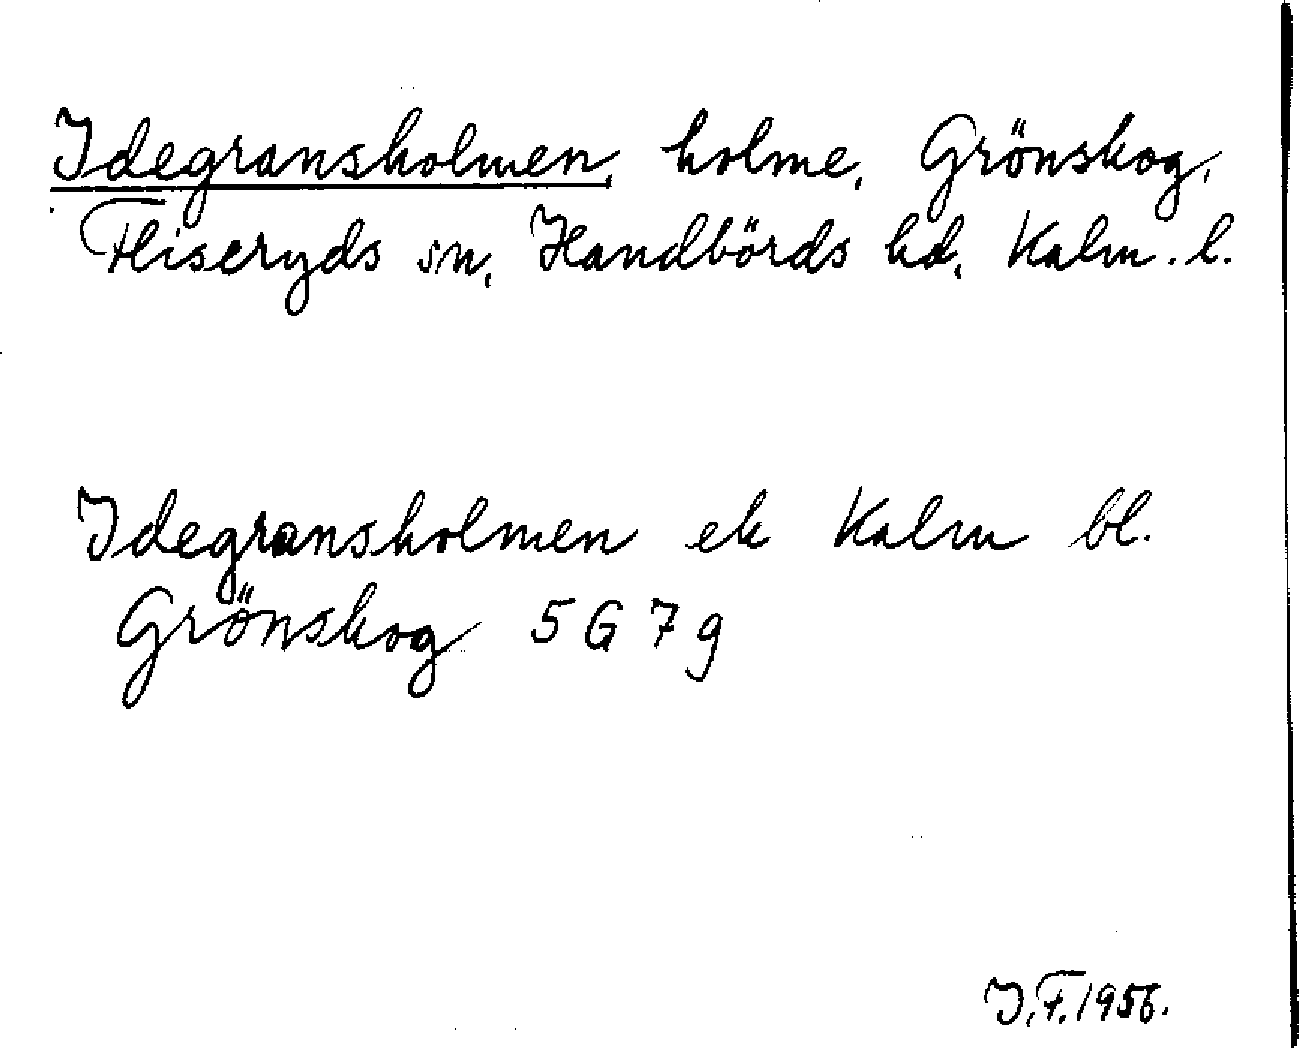 Idegransholmen, holme, Grönskog,
Fliseryds sn, Handbörds hd, Kalm. l.
Idegransholmen ek Kalm bl.
Grönskog 5 G 7 g
I.F. 1956.